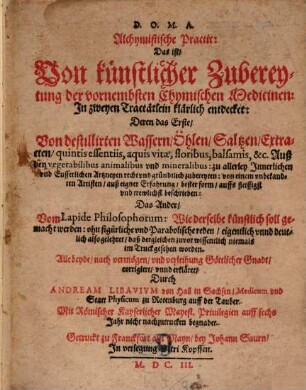 D. O. M. A.
Alchymistische Practic:
Das ist/
Von künstlicher Zuberey-
tung der vornembsten Chymischen Medicinen:
In zweyen Tractätlein klärlich entdecket:
Deren das Erste/
Von destillirten Wassern/ Öhlen/ Saltzen/ Extra-
cten/ quintis essentiis, aquis vitæ, floribus, balsamis, &c. Auß
den vegetabilibus animalibus vnd mineralibus: zu allerley Innerlichen
vnd Eusserlichen Artzneyen recht vnd gründtlich zubereyten: von einem vnbekand-
ten Artisten/ auß eigner Erfahrung/ bester form/ auffs fleissigst
vnd trewlichst beschrieben:
Das Ander/
Vom Lapide Philosophorum: Wie derselbe künstlich soll ge-
macht werden: ohn figürliche vnd Parabolische reden/ eigentlich vnnd deut-
lich also gelehret/ daß dergleichen zuvor wissentlich niemals
im Truck gesehen worden.
Alle beyde/ nach vermögen/ vnd verleihung Göttlicher Gnade/
corrigiert/ vnnd erkläret/
Durch
ANDREAM LIBAVIUM von Hall in Sachsen/ Medicum vnd
Statt Physicum zu Rotenburg auff der Tauber.
Mit Römischer Kayserlicher Mayest. Privilegien auff sechs
Jahr nicht nachzutrucken begnadet.
Getruckt zu Franckfurt am Mayn/ bey Johann Saurn/
In verlegung Petri Kopffen.
M. DC. III.